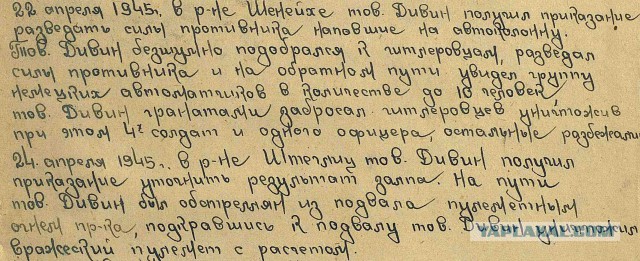 22 апреля 1945г. в р-не Шенейхе тов. Дивин получил приказание
разведать силы противника напавшие на автоколонну.
Тов. Дивин безшумно подобрался к гитлеровцам, разведал
силы противника и на обратном пути увидел группу
немецких автоматчиков в количестве до 10 человек
тов. Дивин гранатами забросал гитлеровцев уничтожив
при этом 4х солдат и одного офицера, остальные разбежали
24. апреля 1945г. в р-не Штеглиц тов. Дивин получил
приказание уточнить результат залпа. На пути
тов. Дивин был обстрелян из подвала пулеметным
огнем пр-ка, подкравшись к подвалу тов. Дивин уничтожил
вражеский пулемет с расчетом.
YAPLAKAL.COM